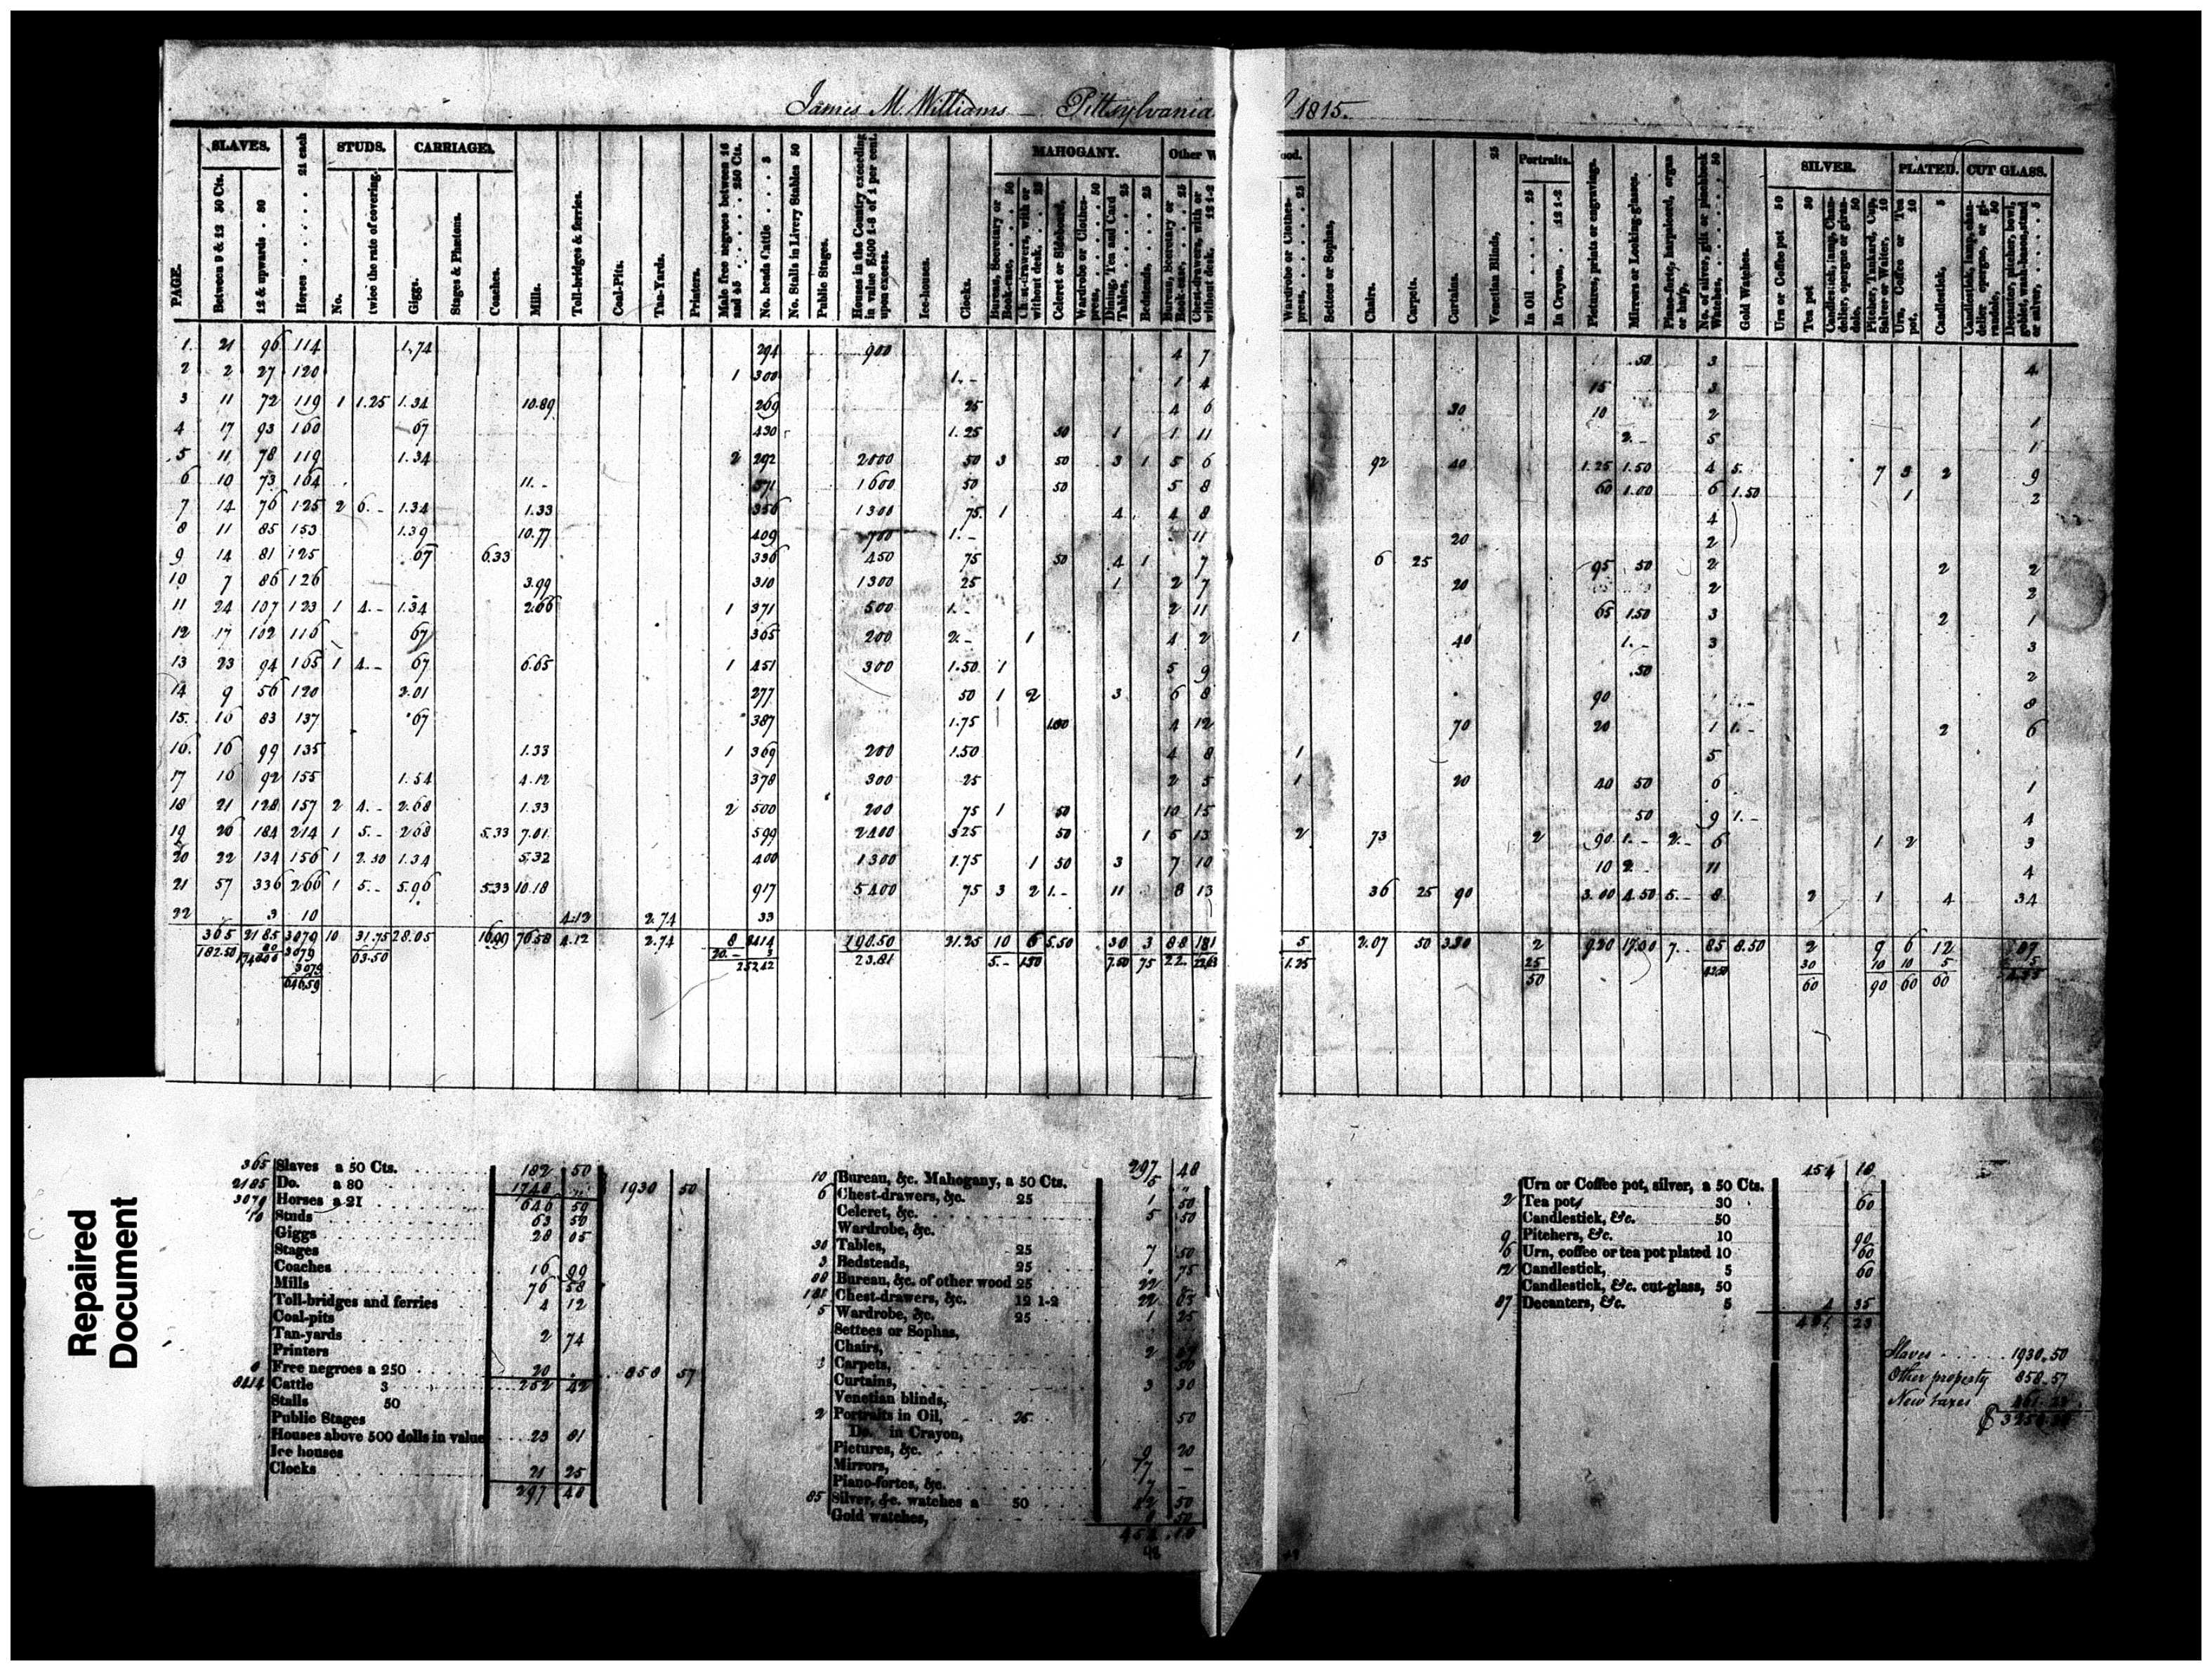 James M. Williams — Pittsylvania 1815.
SLAVES. STUDS. CARRIAGES. MAHOGANY. Other W ood. Portraits. SILVER. PLATED. CUT GLASS.
PAGE.
Between 9 & 12 50 Cts.
12 & upwards . 80
Horses . . . . . 21 each
No.
twice the rate of covering.
Giggs.
Stages & Phætons.
Coaches.
Mills.
Toll-bridges & ferries.
Coal-Pits.
Tan-Yards.
Printers.
Male free negroes between 16 and 45 . . . . . 250 Cts.
No. heads Cattle . . . . 3
No. Stalls in Livery Stables 50
Public Stages.
Houses in the Country exceeding in value $500 1-8 of 1 per cent. upon excess.
Ice-houses.
Clocks.
Bureau, Secretary or Book-case, . . . . 50
Chest-drawers, with or without desk. . . . 25
Celeret or Sideboard,
Wardrobe or Clothes-press, . . . . 50
Dining, Tea and Card Tables, . . . . 25
Bedsteads, . . . . 25
Bureau, Secretary or Book-case, . . . . 25
Chest-drawers, with or without desk. 12 1-2
Wardrobe or Clothes-press, . . . . 25
Settees or Sophas,
Chairs.
Carpets.
Curtains.
Venetian Blinds, 25
In Oil . . . . . 25
In Crayon, . . 12 1-2
Pictures, prints or engravings.
Mirrors or Looking-glasses.
Piano-forte, harpsicord, organ or harp,
No. of silver, gilt or pinchbeck Watches, . . . . . 50
Gold Watches.
Urn or Coffee pot 50
Tea pot 30
Candlestick, lamp, Chandelier, epergne or girandole. 50
Pitcher, Tankard, Cup, Salver or Waiter, 10
Urn, Coffee or Tea pot. 10
Candlestick, 5
Candlestick, lamp, chandelier epergne, or girandole, 50
Decanter, pitcher, bowl, goblet, wash-bason, stand or salver, . . . . 5
1. 21 96 114 1.74 294 900 4 7 50 3 4
2 2 27 120 1 300 1.- 1 4 15 3
3 11 72 119 1 1.25 1.34 10.89 269 25 4 6 30 10 2 1
4 17 93 160 67 430 1.25 50 1 1 11 2.- 5 1
5 11 78 119 1.34 2 292 2000 50 3 50 3 1 5 6 92 40 1.25 1.50 4 5. 7 3 2 9
6 10 73 164 11.- 371 1600 50 50 5 8 60 1.00 6 1.50 1 2
7 14 76 125 2 6.- 1.34 1.33 356 1300 75. 1 4 4 8 4
8 11 85 153 1.39 10.77 409 700 1.- 11 20 2
9 14 81 125 67 6.33 336 450 75 50 4 1 7 6 25 95 50 2 2 2
10 7 86 126 3.99 310 1300 25 1 2 7 20 2 2
11 24 107 123 1 4.- 1.34 2.66 1 371 500 1.- 2 11 65 1.50 3 2 1
12 17 102 116 67 365 200 2.- 1 4 2 1 40 1.- 3 3
13 23 94 165 1 4.- 67 6.65 1 451 300 1.50 1 5 9 .50 2
14 9 56 120 2.01 277 50 1 2 3 6 8 90 8
15. 16 83 137 67 387 1.75 1.00 4 12 70 20 1 1.- 2 6
16. 16 99 135 1.33 1 369 200 1.50 4 8 1 5
17 16 92 155 1.54 4.12 378 300 25 2 5 1 20 40 50 6 1
18 21 128 157 2 4.- 2.68 1.33 2 500 200 75 1 50 10 15 50 9 1.- 4
19 26 184 214 1 5.- 2.68 5.33 7.01 599 2400 3.25 50 1 5 13 2 73 2 90 1.- 2.- 6 1 2 3
20 22 134 156 1 2.50 1.34 5.32 400 1300 1.75 1 50 3 7 10 10 2 11 4
21 57 336 266 1 5.- 5.96 5.33 10.18 917 5400 75 3 2 1.- 11 8 13 36 25 90 3.00 4.50 5.- 8 2 1 4 34
22 3 10 4.12 2.74 33
365 2185 3079 10 31.75 28.05 16.99 76.58 4.12 2.74 8 8414 19050 21.25 10 6 5.50 30 3 88 181 5 2.07 50 3.30 2 9.20 17.00 7.- 85 8.50 2 9 6 12 87
182.50 80 3079 63.50 20.- 3 23.81 5.- 1.50 7.50 75 22 22.63 1.25 25 42.50 30 10 10 5 5
174800 3079 252.42 50 60 90 60 60 4.35
646.59
365 Slaves a 50 Cts. 182 50
2185 Do. a 80 1748 1930 50
3079 Horses a 21 646 59
10 Studs 63 50
Giggs 28 05
Stages
Coaches 16 99
Mills 76 58
Toll-bridges and ferries 4 12
Coal-pits
Tan-yards 2 74
Printers
8 Free negroes a 250 20 858 57
8414 Cattle 3 252 42
Stalls 50
Public Stages
Houses above 500 dolls in value 23 81
Ice houses
Clocks 21 25
297 48
297 48
10 Bureau, &c. Mahogany, a 50 Cts. 5
6 Chest-drawers, &c. 25 1 50
Celeret, &c. 5 50
Wardrobe, &c.
30 Tables, 25 7 50
3 Bedsteads, 25 75
88 Bureau, &c. of other wood 25 22
181 Chest-drawers, &c. 12 1-2 22 63
5 Wardrobe, &c. 25 1 25
Settees or Sophas,
Chairs, 2 07
Carpets, 50
Curtains, 3 30
Venetian blinds,
2 Portraits in Oil, 25 50
Do. in Crayon,
Pictures, &c. 9 20
Mirrors, 17 –
Piano-fortes, &c. 7 –
85 Silver, &c. watches a 50 42 50
Gold watches, 8 50
454 18
454 18
Urn or Coffee pot, silver, a 50 Cts.
2 Tea pot, 30 60
Candlestick, &c. 50
9 Pitchers, &c. 10 90
6 Urn, coffee or tea pot plated 10 60
12 Candlestick, 5 60
Candlestick, &c. cut-glass, 50
87 Decanters, &c. 5 4 35
461 23
Slaves 1930.50
Other property 858.57
New taxes 461.23
Repaired
Document